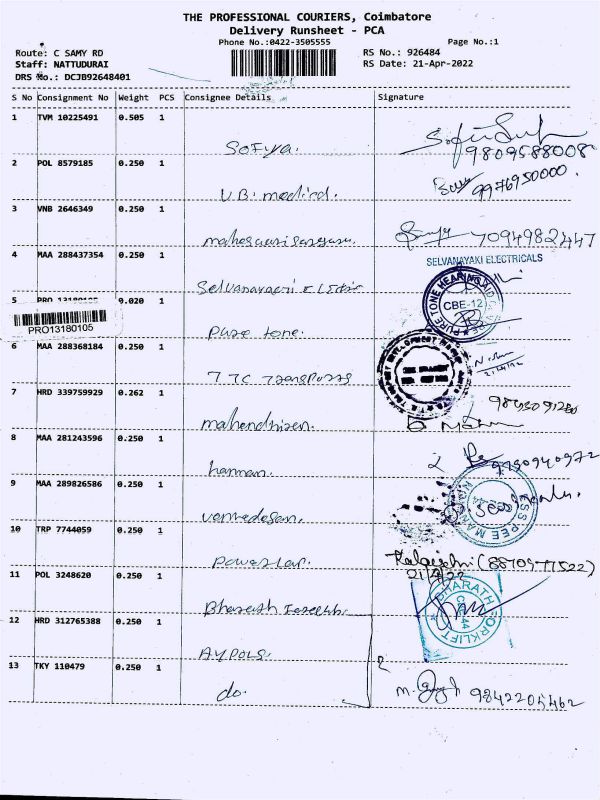 THE PROFESSIONAL COURIERS, Coimbatore
Delivery Runsheet - PCA
Phone No.:0422-3505555
Page No.:1
Route: C SAMY RD
RS No.: 926484
Staff: NATTUDURAI
RS Date: 21-Apr-2022
DRS No.: DCJB92648401
S No Consignment No Weight PCS Consignee Details Signature
1 TVM 10225491 0.505 1
Sofiya. 9809588008
2 POL 8579185 0.250 1
V.B. medical. 9976950000.
3 VNB 2646349 0.250 1
7094982447
4 MAA 288437354 0.250 1
SELVANAYAKI ELECTRICALS
5 PRO 13180105 0.020 1
PURE TONE HEARING AID
CBE-12
PRO13180105
Pure tone.
6 MAA 288368184 0.250 1
T.T.C Transports
7 HRD 339759929 0.262 1
8 MAA 281243596 0.250 1
hannan. 9150940972
9 MAA 289826586 0.250 1
10 TRP 7744059 0.250 1
21/4/22
11 POL 3248620 0.250 1
BHARATH FORKLIFT
12 HRD 312765388 0.250 1
AYPOLS.
13 TKY 110479 0.250 1
do. 9842205462